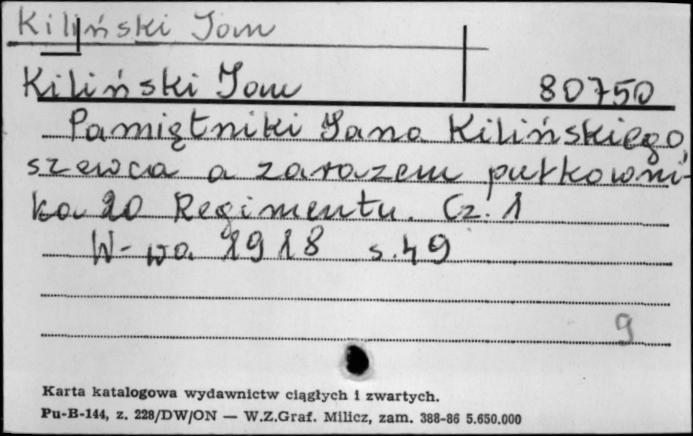 Kiliński Jan
Kiliński Jan 80750
Pamiętniki Jana Kilińskiego,
szewca a zarazem pułkowni-
ka 20 Regimentu. Cz. 1
W-wa 1918 s. 49
9
Karta katalogowa wydawnictw ciągłych i zwartych.
Pu-B-144, z. 228/DW/ON — W.Z.Graf. Milicz, zam. 388-86 5.650.000